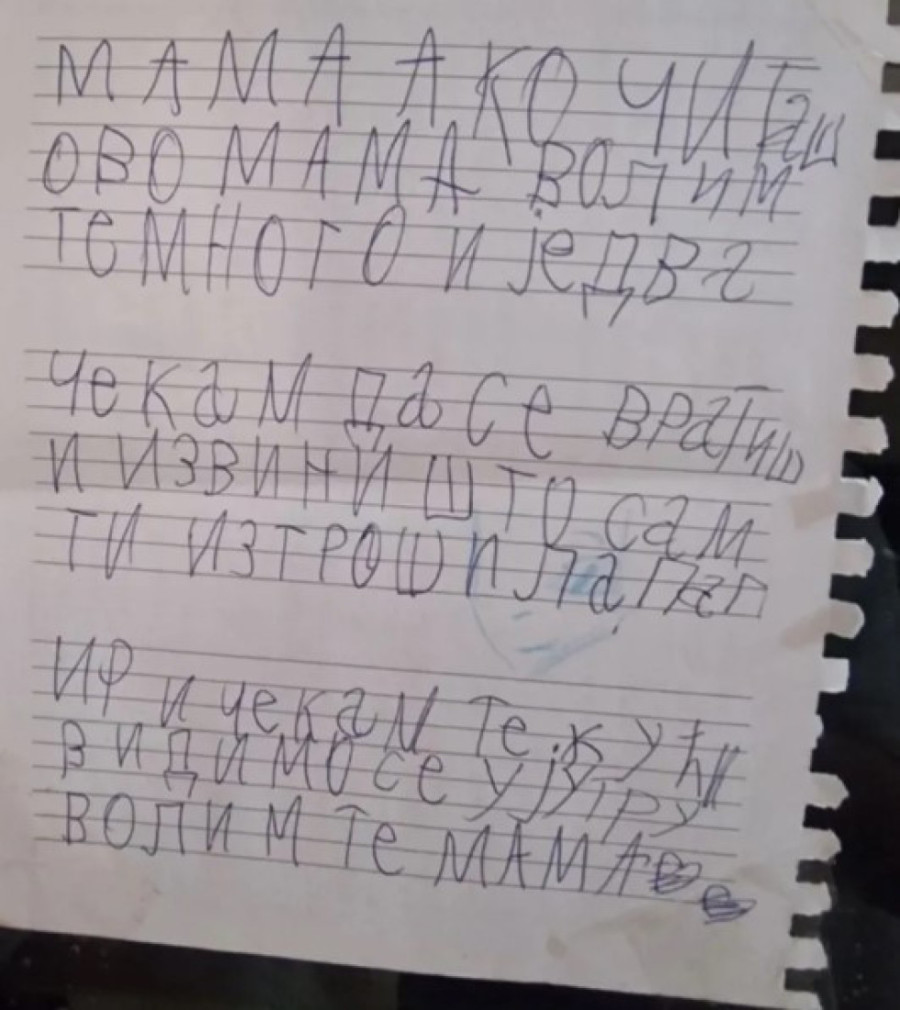 МАМА АКО ЧИТаш
ОВО МАМА ВОЛИМ
ТЕ МНОГО И ЈЕДВа
ЧеКаМ Да Се ВРаТиш
И ИЗВИНИ ШТО Сам
ТИ ИЗТРОШИЛа Пап
ИР И чекаМ Те.К УЋИ
ВИДИМО Се УЈУТРУ
ВОЛИМ Те МАМА